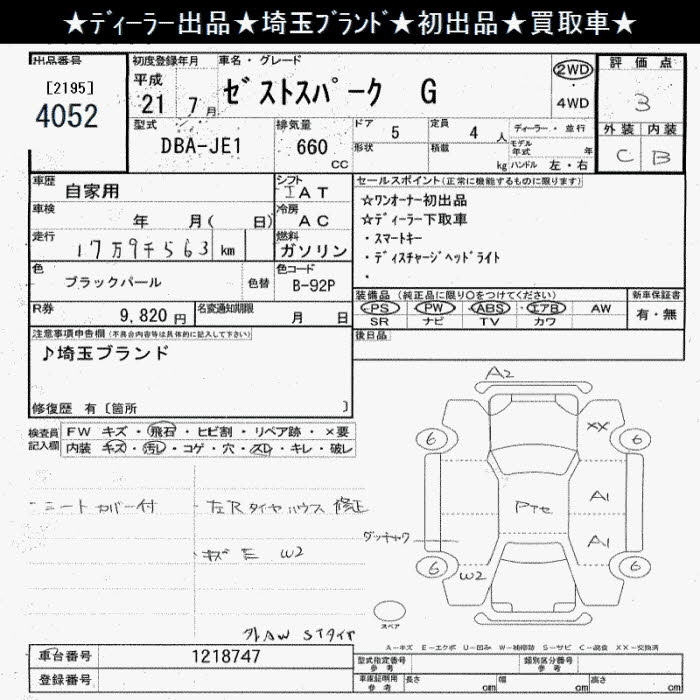 ★ﾃﾞｨｰﾗｰ出品★埼玉ﾌﾞﾗﾝﾄﾞ★初出品★買取車★
出品番号 初度登録年月 車名・グレード 評価点
[2195] 平成 ｾﾞｽﾄｽﾊﾟｰｸ G 2WD 3
4052 21 7月 4WD
型式 排気量 ドア 5 定員 4人 ディーラー・並行 外装 内装
DBA-JE1 660 CC 形状 積載 kg モデル年式 年 ハンドル 左・右 C B
車歴 自家用 シフト IAT セールスポイント(正常に機能するものに限ります)
車検 年 月( 日) 冷房 AC ☆ﾜﾝｵｰﾅｰ初出品
☆ﾃﾞｨｰﾗｰ下取車
走行 17万9千563 km 燃料 ガソリン ・ｽﾏｰﾄｷｰ
・ﾃﾞｨｽﾁｬｰｼﾞﾍｯﾄﾞﾗｲﾄ
・
色 ブラックパール 色替 色コード B-92P
装備品 (純正品に限り○をつけてください) 新車保証書
R券 9,820円 名変通知期限 月 日 PS PW ABS エアB AW 有・無
SR ナビ TV カワ
注意事項申告欄(不具合内容等は具体的に記入して下さい) 後日品
♪埼玉ブランド
修復歴 有 [箇所 ]
検査員記入欄 FW キズ・飛石・ヒビ割・リペア跡・×要
内装 キズ・汚レ・コゲ・穴・スレ・キレ・破レ
A2
XX
6 6
シートカバー付 左Rタイヤハウス 修正
Pte A1
ダッチャク A1
キズ E W2
6 W2 6
スペア
外AW Sタイヤ
A-キズ E-エクボ U-凹み W-補修跡 S-サビ C-腐食 XX-交換済
車台番号 1218747 型式指定番号 参考 類別区分番号 参考
登録番号 車庫証明用 参考 長さ cm 幅 cm 高さ cm